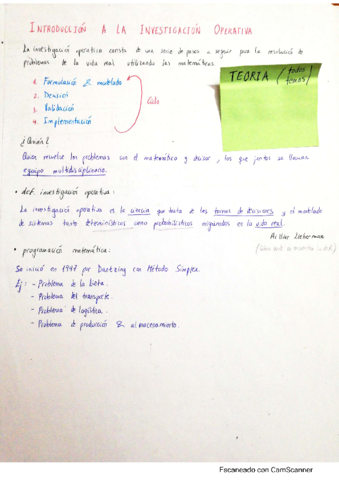 INTRODUCCIÓN A LA INVESTIGACIÓN OPERATIVA
La investigación operativa consta de una serie de pasos a seguir para la resolución de
problemas de la vida real utilizando las matemáticas.
TEORÍA (todos temas)
1. Formulación & modelado
2. Decisión
3. Validación
4. Implementación
Ciclo
¿Quién?
Quien resuelve los problemas son el matemático y decisor, los que juntos se llaman
equipo multidisciplinario.
• def. investigación operativa:
La investigación operativa es la ciencia que trata de las tomas de decisiones y el modelado
de sistemas tanto determinísticos como probabilísticos originados en la vida real.
Lieberman
• programación matemática:
Se inició en 1947 por Dantzing con Método Simplex.
Ej: - Problema de la Dieta.
- Problema del transporte.
- Problema de logística.
- Problema de producción & almacenamiento.
Escaneado con CamScanner